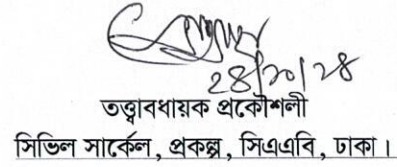 ২৪/১০/২৪
তত্ত্বাবধায়ক প্রকৌশলী
সিভিল সার্কেল, প্রকল্প, সিএএবি, ঢাকা।